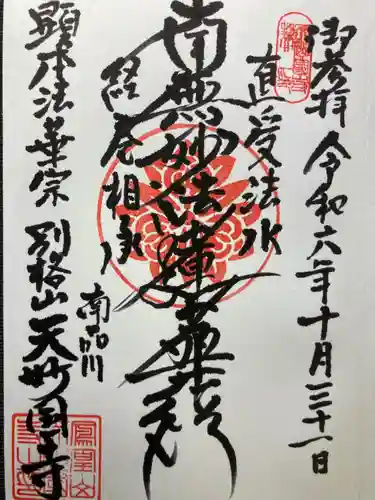 御参拝 令和六年十月三十一日
直受法水
南無妙法蓮華経
経巻相承
顕本法華宗 別格山 天妙国寺
南品川
鳳凰山